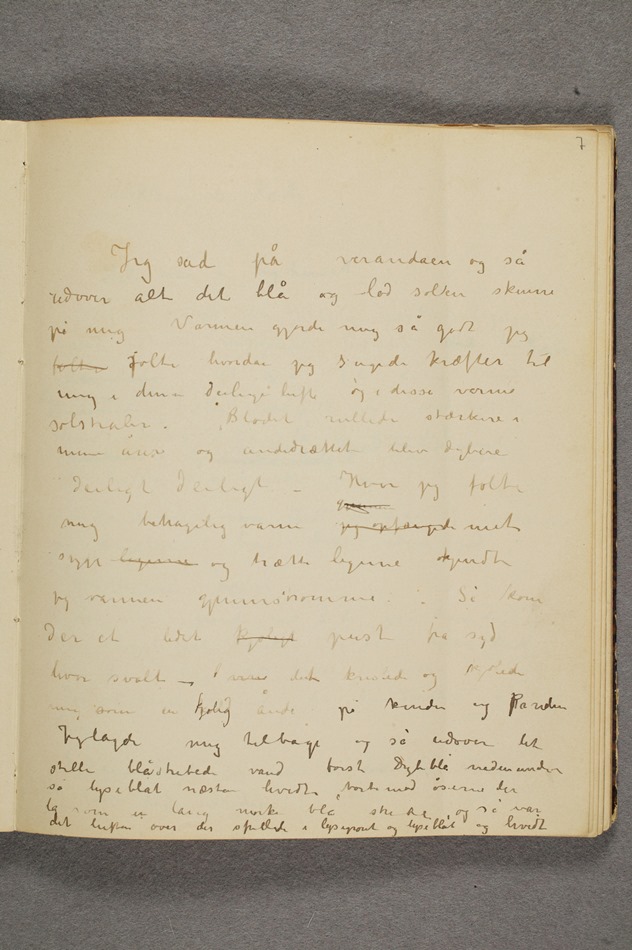 7
Jeg sad på verandaen og så
udover alt det blå og lod solen skinne
på mig Varmen gjorde mig så godt jeg
følte følte hvordan jeg sugede kræfter til
mig i denne deilige luft og i disse varme
solstraler. Blodet rullede stærkere i
mine årer og åndedrættet blev dybere
deiligt deiligt – Hvor jeg følte
mig behagelig varm jeg opfangede mit
syge legeme og trætte legeme kjendte
jeg varmen gjennemstrømme. Så kom
der et lidet kjøligt pust fra syd
hvor svalt –
mig som en kjølig ånde på kinder og Panden
Jeg lagde mig tilbage og så udover det
stille blåstribede vand først dybblå nedenunder
så lyseblåt næsten hvidt borte med åserne der
lå som en lang mørk blå stribe og så var
det luften over der spillede i lyserødt og lyseblåt og hvidt